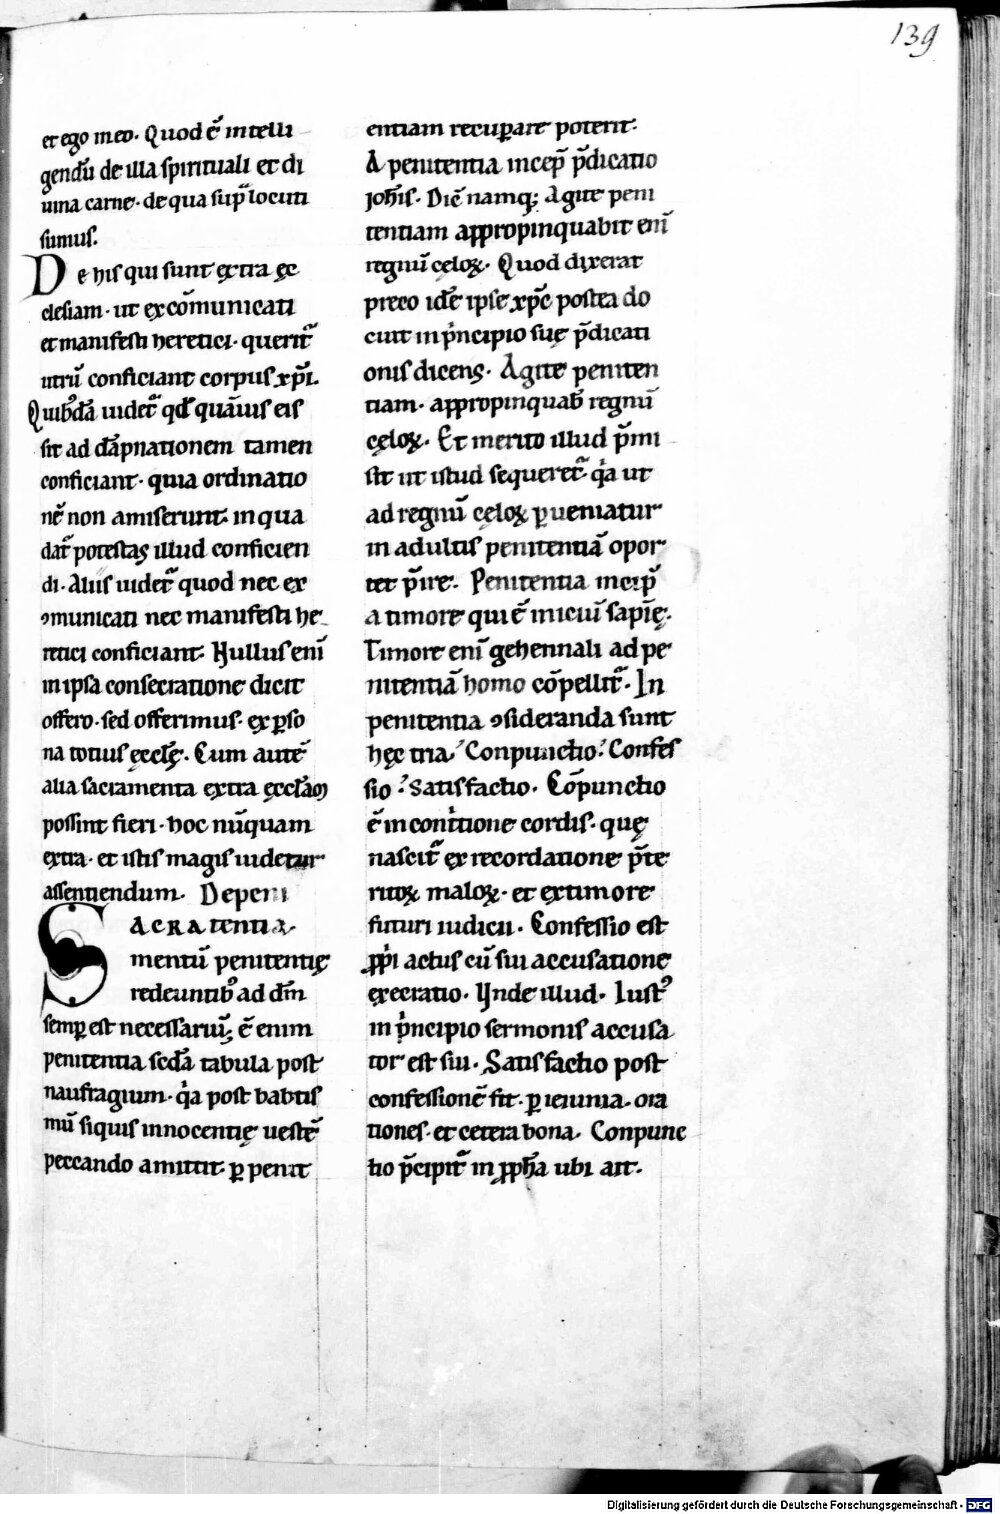 139
et ego meo. Quod ē intelli
gendū de illa spirituali et di
uina carne. de qua sup̄ locuti
sumus.
De his qui sunt extra ęc
clesiam. ut excōmunicati
et manifesti heretici. querit᷑
utrū conficiant corpus xp̄i.
Quibꝰdā uidet᷑ qd̄ quāuis eis
sit ad dāpnationem tamen
conficiant. quia ordinatio
nē non amiserunt. in qua
dat᷑ potestas illud conficien
di. Aliis uidet᷑ quod nec ex
ꝯmunicati nec manifesti he
retici conficiant. Nullus enī
in ipsa consecratione dicit
offero. sed offerimus. ex ꝑso
na totius ęccl̄ę. Cum autē
alia sacramenta extra ęccl̄am
possint fieri. hoc nūquam
extra. et istis magis uidetur
assentiendum. De peni
SACRA tentia.
mentū penitentię
redeuntibꝰ ad dm̄
semꝑ est necessariū; ē enim
penitentia secda̅ tabula post
naufragium. qͥa post babtis
mū siquis innocentię uestē
peccando amittit. ꝑ penit
entiam recuꝑare poterit.
A penitentia incep̄ p̄dicatio
joh̄is. Dic̄ namq; Agite peni
tentiam appropinquabit enī
regnū cęloꝝ. Quod dixerat
preco idē ipse xp̄c postea do
cuit in pͥncipio suę p̄dicati
onis dicens. Agite peniten
tiam. appropinquab̄ regnū
cęloꝝ. Et merito illud p̄mi
sit ut istud sequeret᷑. qͥa ut
ad regnū cęloꝝ ꝑueniatur
in adultis penitentiā opor
tet p̄ire. Penitentia incip̄
a timore qui ē iniciū sapīę.
Timore enī gehennali ad pe
nitentiā homo cōpellit᷑. In
penitentia ꝯsideranda sunt
hęc tria. Conpunctio. Confes
sio. Satisfactio. Cōpunctio
ē in contͥtione cordis. quę
nascit᷑ ex recordatione p̄te
ritoꝝ maloꝝ. et ex timore
futuri iudicii. Confessio est
ꝓpͥi actus cū sui accusatione
execratio. Unde illud. Iustꝰ
in pͥncipio sermonis accusa
tor est sui. Satisfactio post
confessionē fit. ꝑ ieiunia. ora
tiones. et cetera bona. Conpunc
tio p̄cipit᷑ in ꝓph̄a ubi ait.
Digitalisierung gefördert durch die Deutsche Forschungsgemeinschaft - DFG